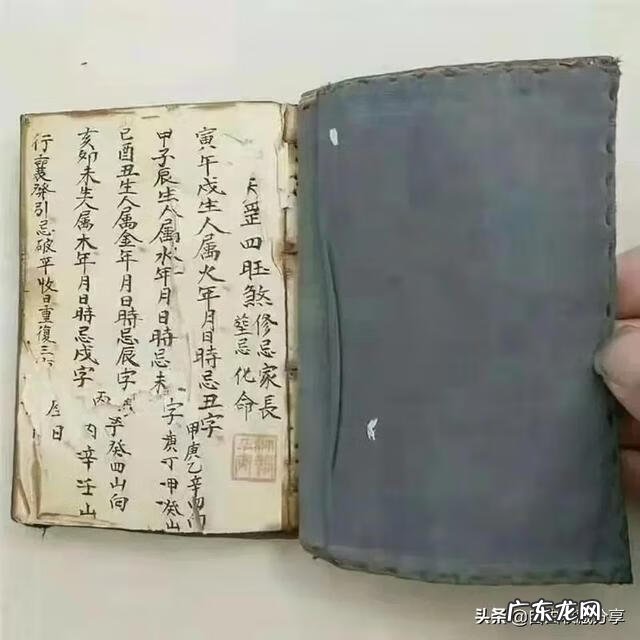 罡四旺煞
修忌家長
塟忌化命
寅午戌生人属火年月日時忌丑字
甲庚乙辛四
甲子辰生人属水年月日時忌未
字
庚丁甲癸山
巳酉丑生人属金年月日時忌辰字
癸四山向
亥卯未生人属木年月日時忌戌字
丙
辛壬山
行襄發引忌破平收日重復三
日
头条
分享
广东龙网